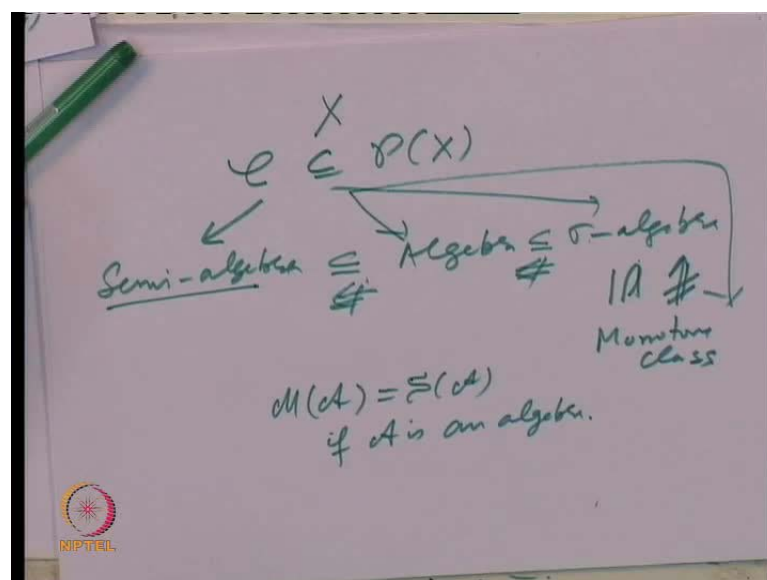 X
𝒞 ⊆ 𝒫(X)
Semi-algebra ⊆ Algebra ⊆ σ-algebra
Monotone
class
M(A) = S(A)
if A is an algebra.
NPTEL